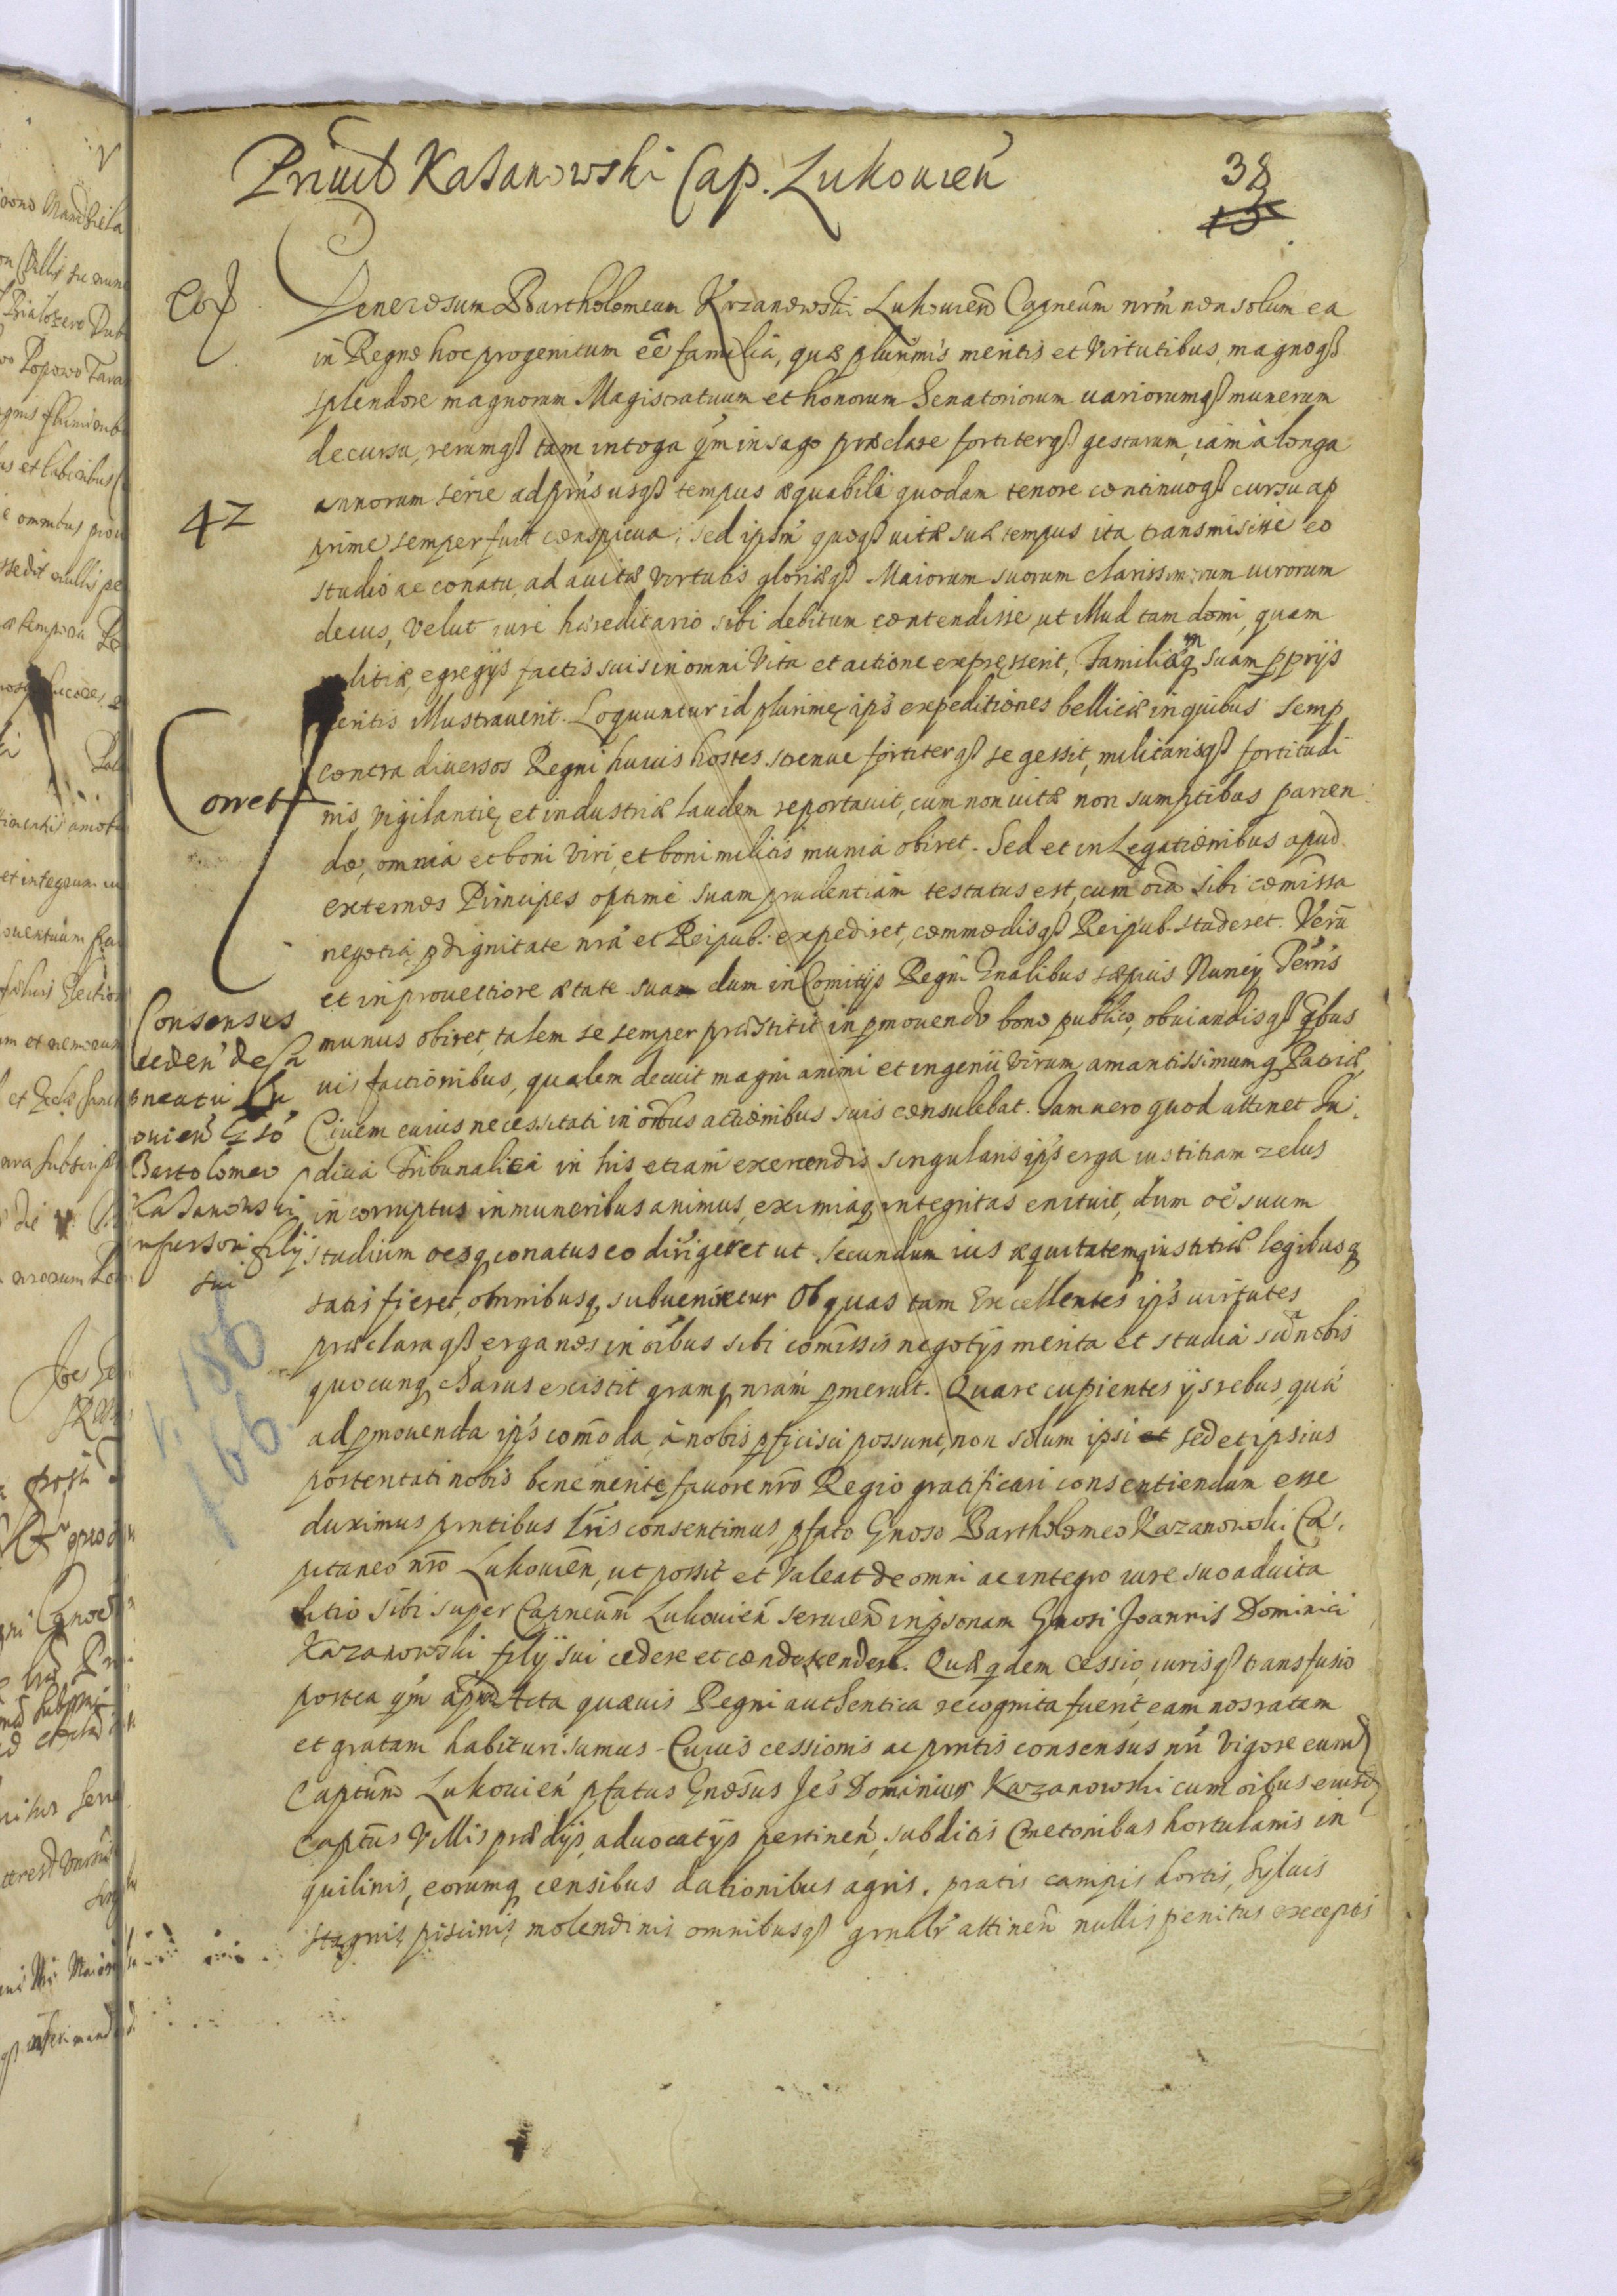 Priuil Kasanowski Cap. Lukouien̄
38
15
Cos
Generosum Bartholomeum Krzanowski Lukouien̄ Capneum nrm̄ non solum ea
in Regno hoc progenitum eē familia, quæ plurimis meritis et Virtutibus, magnoqß
splendore magnorum Magistratuum et honorum Senatoriorum uariorumqß munerum
decursu, rerumqß tam in toga qm̄ in sago præclare fortiterqß gestarum, iam à longa
annorum serie ad pn̄s usqß tempus æquabili quodam tenore continuoqß cursu ap
42
prime semper fuit conspicua; sed ipsm̄ quoqß uitæ suæ tempus ita transmisisse eo
studio ac conatu, ad auitæ virtutis gloriæqß Maiorum suorum clarissimorum uirorum
decus, velut iure hæreditario sibi debitum contendisse, ut illud tam domi, quam
militiæ, egregijs factis suis in omni Vita et actione expresserit, Familiāq suam pprijs
meritis illustrauerit. Loquuntur id plurimę ips expeditiones bellicæ in quibus semp
contra diuersos Regni huius hostes strenue fortiterqß se gessit, militarisqß fortitudi
Corret
nis vigilantię et industriæ laudem reportauit, cum non uitæ non sumptibus parcen
do, omnia et boni viri, et boni militis munia obiret. Sed et in Legationibus apud
externos Principes optime suam prudentiam testatus est, cum oīa sibi comissa
negotia, p dignitate nrā et Reipub: expediret, commodisqß Reipub. studeret. Verū
et in prouectiore ætate sua dum in Comitijs Regni Gnalibus sæpius Nuncij Terris
munus obiret, talem se semper præstitit in pmouendo bono publico, obuiandisqß qbus
uis factionibus, qualem decuit magni animi et ingenii virum amantissimumq Patriæ
Ciuem cuius necessitati in oībus actionibus suis consulebat. Iam uero quod attinet Iu
dicia Tribunalitia in his etiam exercendis singularis ips erga iustitiam zelus
incorruptus in muneribus animus, eximiaq integritas enituit, dum oē suum
studium oesq conatus eo dirigeret ut secundum ius æquitatemq iustitiæ legibusq
satis fieret, omnibusq subueniretur Ob quas tam Excellentes ips uirtutes
præclaraqß erga nos in oībus sibi comissis negotijs merita et studia
Consensus
ceden̄ de Ca
pneatu Lu
ouien̄ Gso
Bartolomeo
Kasanowski
in personā filij
sui
p. 186
f 66.
quocunq charus existit gramq nram pmeruit. Quare cupientes ijs rebus, quæ
ad pmouenda ips comoda, à nobis pficisci possunt, non solum ipsi sed et ipsius
postentati nobis bene merite, fauore nrō Regio gratificari consentiendum esse
duximus prntibus lris consentimus, pfato Gnoso Bartholomeo Kazanowski Ca,
pitaneo nrō Lukouien, ut possit et valeat de omni ac integro iure suo aduita
litio sibi super Capneum̄ Lukouien̄ seruien̄ in psonam Gnosi Joannis Dominici
Kazanowski filij sui cedere et condescendere. Quæ qdem cessio iurisqß transfusio
postea qm̄ apud Acta quæuis Regni authentica recognita fuerit, eam nos ratam
et gratam habituri sumus. Cuius cessionis ac prntis consensus nri Vigore eund
Captum Lukouien̄ pfatus Gnosus Jes Dominicus Kazanowski cum oībus eiusd
Captus Villis prædijs, aduocatijs pertinen̄, subditis Cmetonibus hortulanis in
quilinis, eorumq censibus dationibus agris, pratis campis hortis, syluis
stagnis, piscinis, molendinis omnibusqß gnalr attinen̄ nullis penitus exceptis